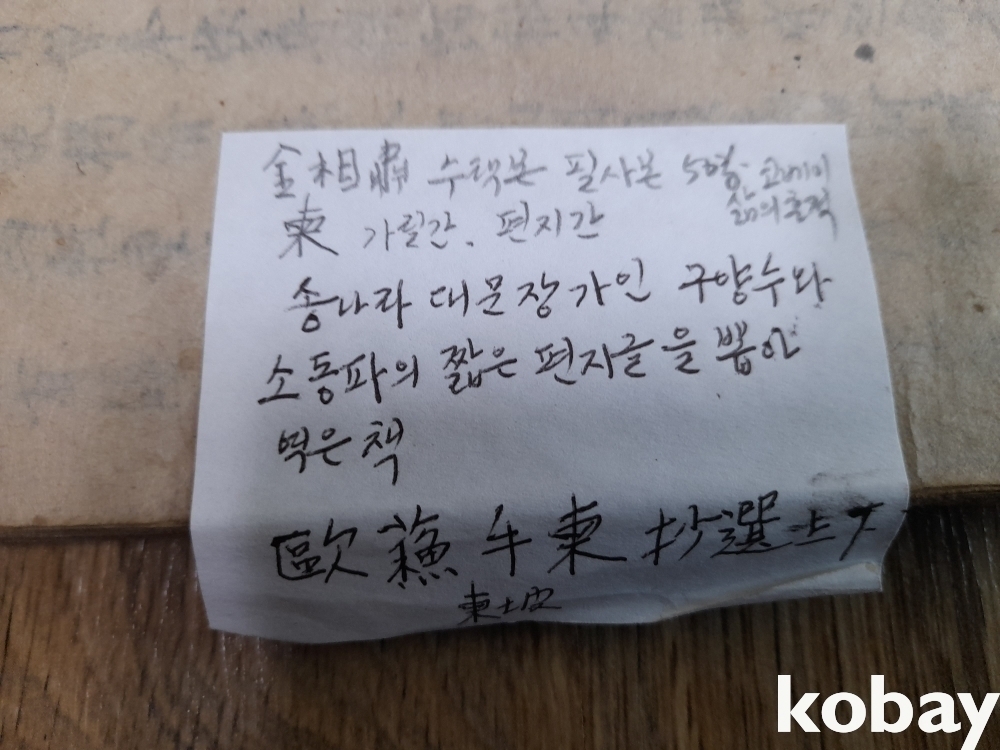 金相肅 수택본 필사본 50장. 코베이
삶의흔적
柬 가릴간, 편지간
송나라 대문장가인 구양수와
소동파의 짧은 편지글을 뽑아
엮은 책
歐蘇手柬抄選 上下
東坡
kobay